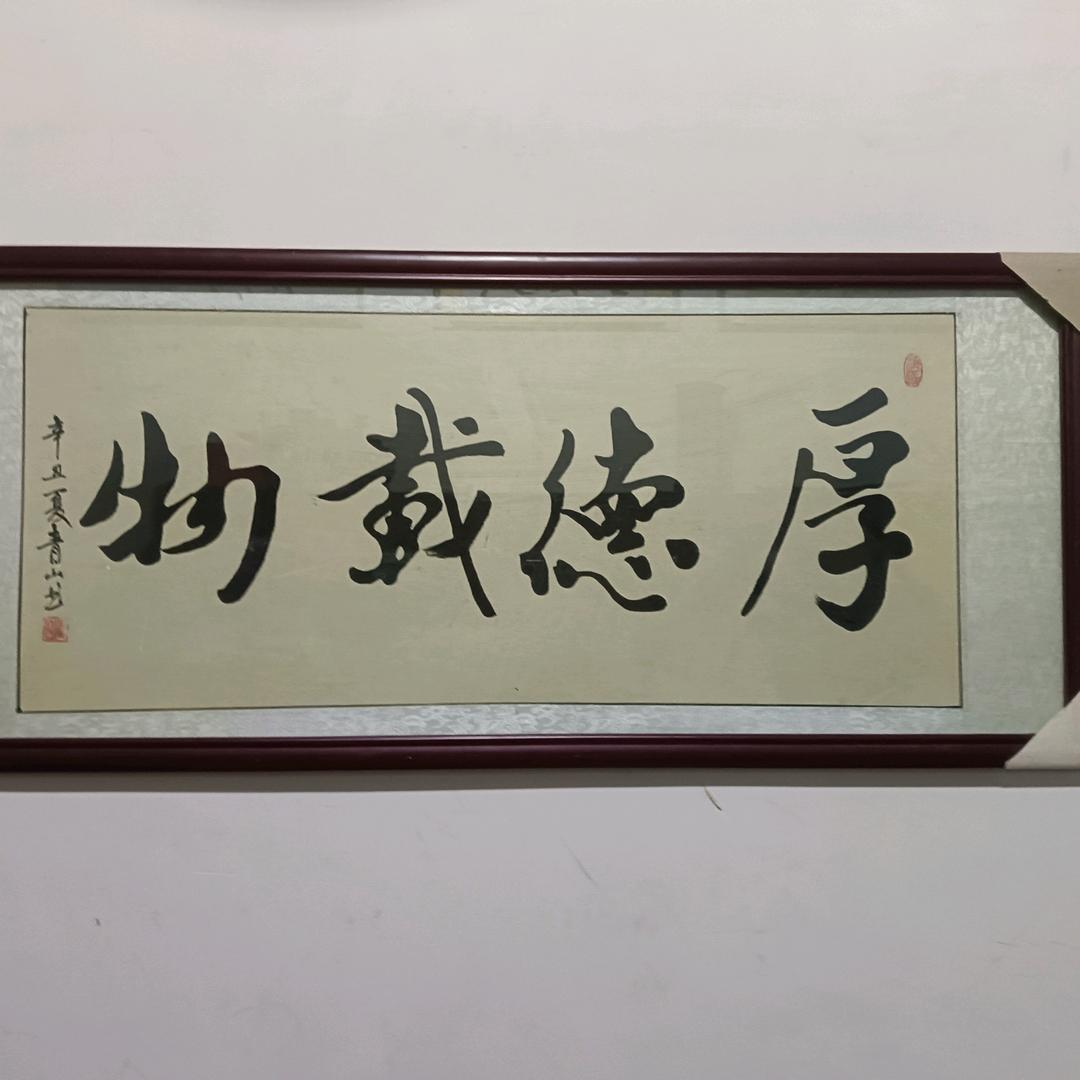 厚德載物
辛丑夏青山书